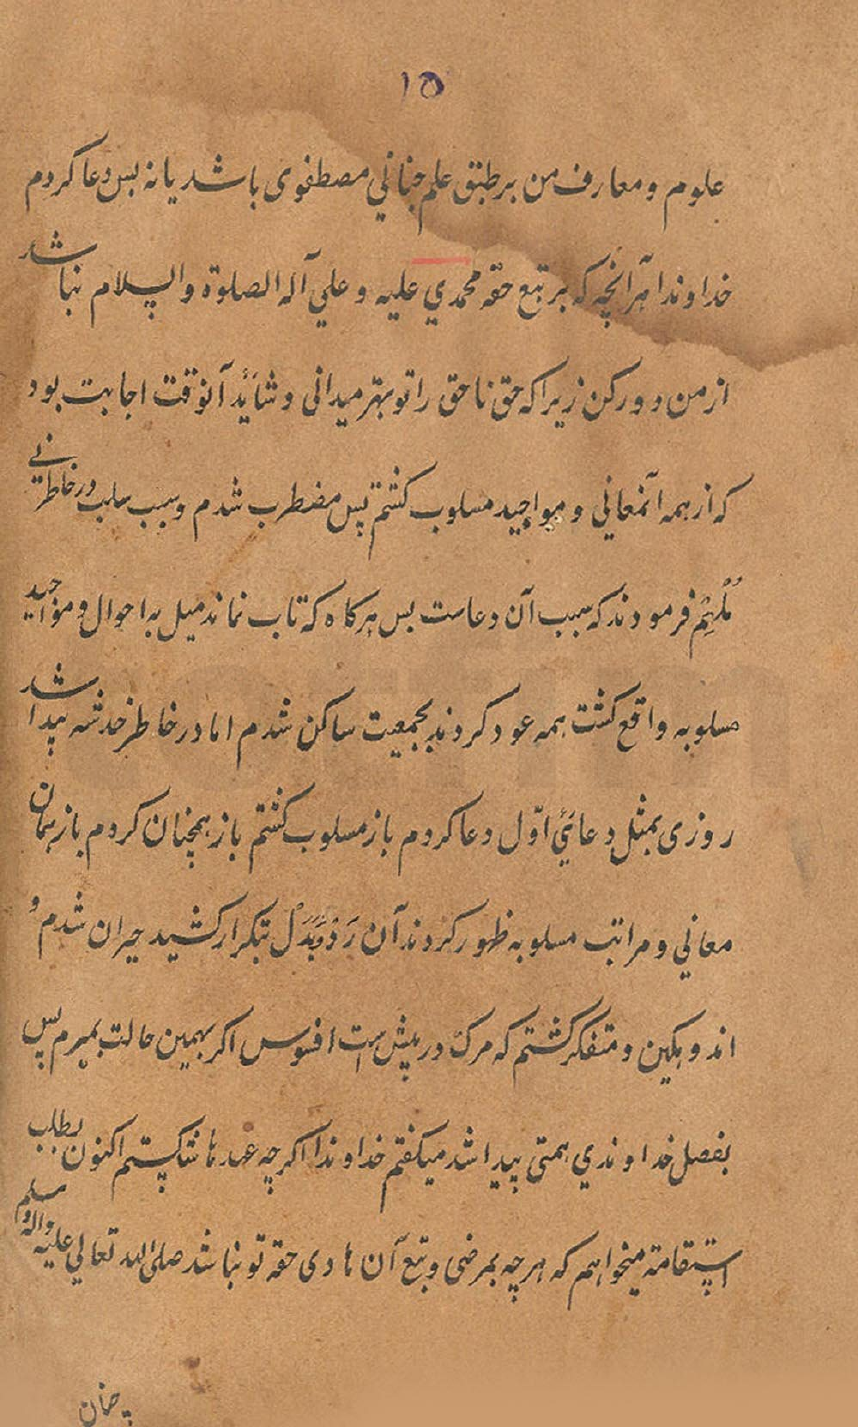 ۱۵
علوم و معارف من بر طبق علم جنانی مصطفوی باشد یا نه بس دعا کردم
خداوندا هر آنچه که بر تبع حقه محمدي علیه و علي آله الصلوة والسلام نباشد
از من دور کن زیرا که حق ناحق را تو بهتر میدانی و شائد آنوقت اجابت بود
که از همه آنمعاني و مواجید مسلوب کشتم پس مضطرب شدم و سبب سلب در خاطر
مُلْهِمْ فرمودند که سبب آن دعاست بس هرکاه که تاب نماند میل به احوال و مواجید
مسلوبه واقع کشت همه عود کردند بجمعیت ساکن شدم اما در خاطر خدشه پیدا شد
روزی بمثل دعائي اوّل دعا کردم باز مسلوب کشتم باز همچنان کردم باز همان
معاني و مراتب مسلوبه ظهور کردند آن رَدّ و بَدَل بتکرار کشید حیران شدم و
اندوهکین و متفکر کشتم که مرک در پیش است افسوس اکر بهمین حالت بمیرم پس
بفضل خداوندي همتی پیدا شد میکفتم خداوندا اکرچه عهدها شکستم اکنون بطلب
استقامة میخواهم که هرچه بمرضی و تبع آن هادی حقه تو نباشد صلی الله تعالي علیه واله وسلم
چنان